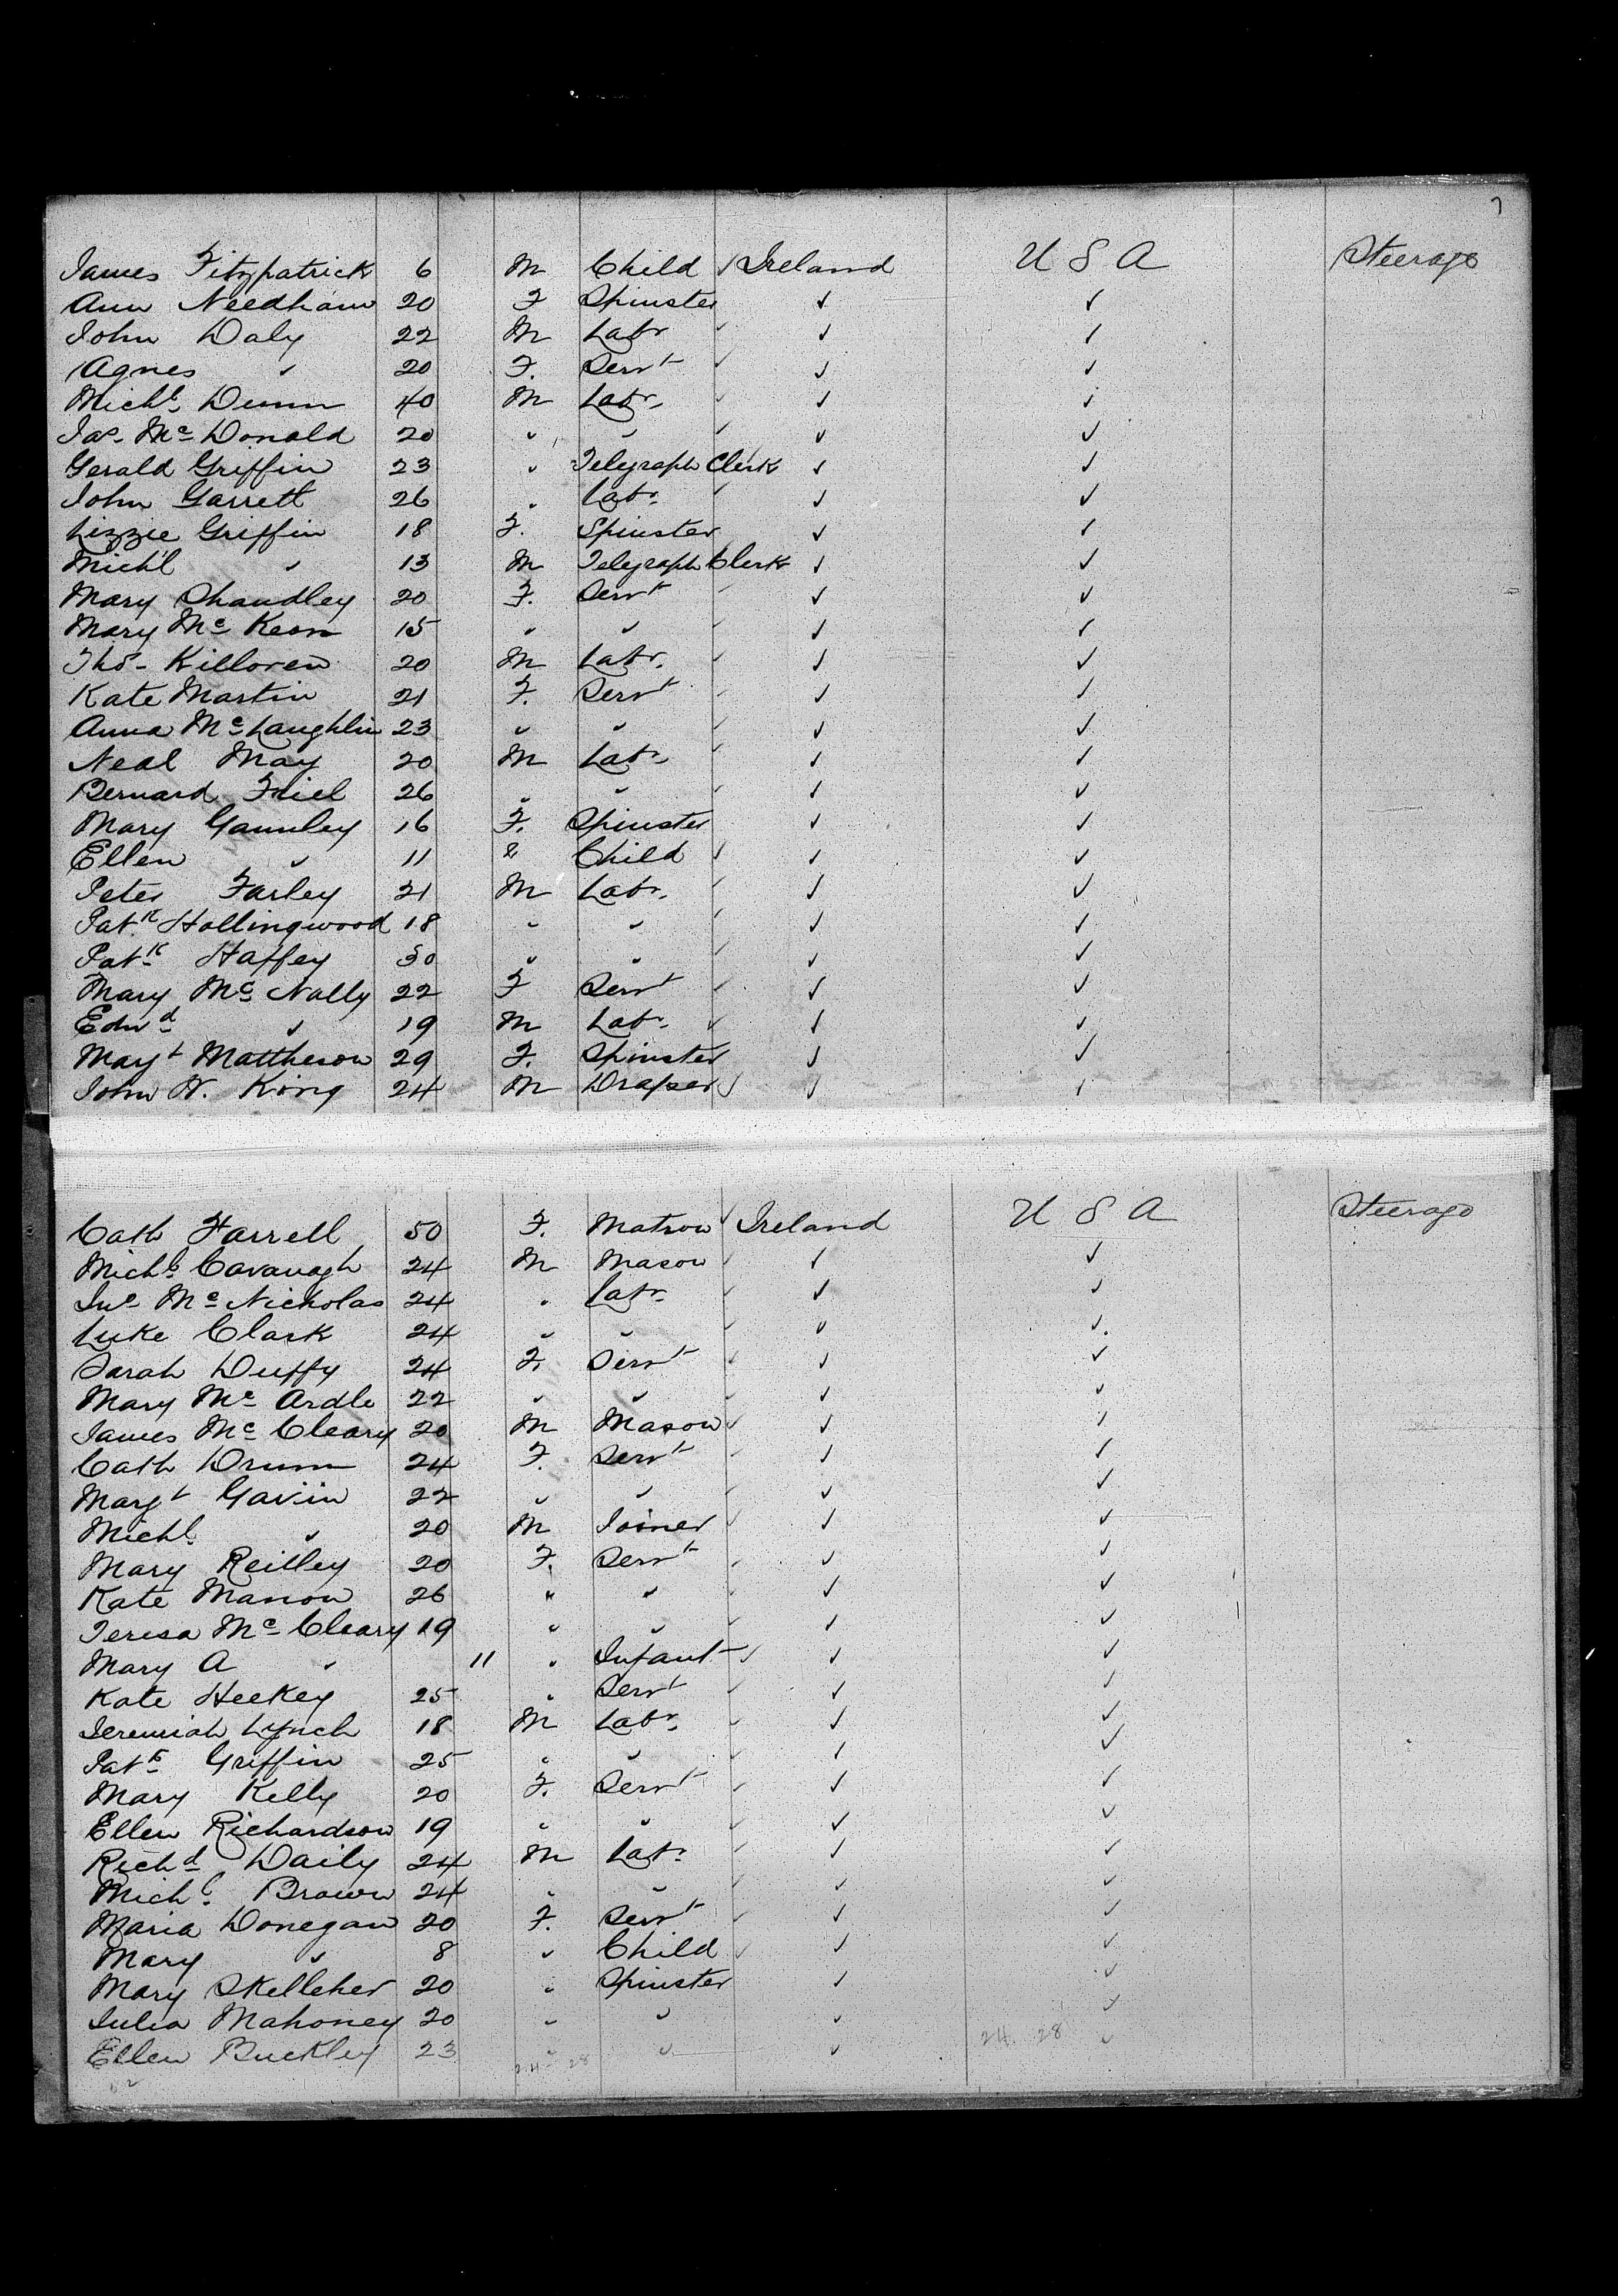 7
James Fitzpatrick 6 M Child ✓ Ireland U S A Steerage
Ann Needham 20 F Spinster ✓ ✓
John Daly 22 M Labr ✓ ✓ ✓
Agnes ✓ 20 F. Servt ✓ ✓ ✓
Michl. Dunn 40 M Labr. ✓ ✓ ✓
Jas. Mc Donald 20 " ✓ ✓ ✓ ✓
Gerald Griffin 23 " Telegraph Clerk ✓ ✓
John Garrett 26 " Labr. ✓ ✓ ✓
Lizzie Griffin 18 F. Spinster ✓ ✓
Mich'l ✓ 13 M Telegraph Clerk ✓ ✓
Mary Shandley 20 F. Servt ✓ ✓ ✓
Mary Mc Keon 15 " ✓ ✓ ✓ ✓
Thos. Killoren 20 M Labr. ✓ ✓ ✓
Kate Martin 21 F. Servt ✓ ✓ ✓
Anna Mc Laughlin 23 " ✓ ✓ ✓ ✓
Neal May 20 M Labr. ✓ ✓ ✓
Bernard Friel 26 " ✓ ✓ ✓ ✓
Mary Gaunley 16 F. Spinster ✓ ✓
Ellen ✓ 11 " Child ✓ ✓ ✓
Peter Farley 21 M Labr. ✓ ✓ ✓
Patk Hollingwood 18 " " ✓ ✓ ✓
Patk Haffey 30 " " ✓ ✓ ✓
Mary Mc Nally 22 F Servt ✓ ✓ ✓
Edwd ✓ 19 M Labr. ✓ ✓ ✓
Mayt Mattheson 29 F. Spinster ✓ ✓
John W. King 24 M Draper ✓ ✓ ✓
Cath Farrell 50 F. Matron ✓ Ireland U S A Steerage
Michl. Cavanagh 24 M Mason ✓ ✓ ✓
Jno. Mc Nicholas 24 " Labr. ✓ ✓ ✓
Luke Clark 24 " ✓ ✓ ✓ ✓
Sarah Duffy 24 F. Servt ✓ ✓ ✓
Mary Mc Ardle 22 " ✓ ✓ ✓ ✓
James Mc Cleary 20 M Mason ✓ ✓ ✓
Cath Drum 24 F. Servt ✓ ✓ ✓
Margt Gavin 22 " ✓ ✓ ✓ ✓
Michl. ✓ 20 M Joiner ✓ ✓ ✓
Mary Reilley 20 F. Servt ✓ ✓ ✓
Kate Mannon 26 " ✓ ✓ ✓ ✓
Teresa Mc Cleary 19 " ✓ ✓ ✓ ✓
Mary A ✓ 11 " Infant ✓ ✓ ✓
Kate Heekey 25 " Servt ✓ ✓ ✓
Jeremiah Lynch 18 M Labr. ✓ ✓ ✓
Patk Griffin 25 " ✓ ✓ ✓ ✓
Mary Kelly 20 F. Servt ✓ ✓ ✓
Ellen Richardson 19 " ✓ ✓ ✓ ✓
Richd Daily 24 M Labr. ✓ ✓ ✓
Michl. Brown 24 " ✓ ✓ ✓ ✓
Maria Donegan 20 F. Servt ✓ ✓ ✓
Mary ✓ 8 " Child ✓ ✓ ✓
Mary Skelleher 20 " Spinster ✓ ✓
Julia Mahoney 20 " ✓ ✓ ✓
Ellen Buckley 23 " ✓ ✓ ✓
24 28 24 28